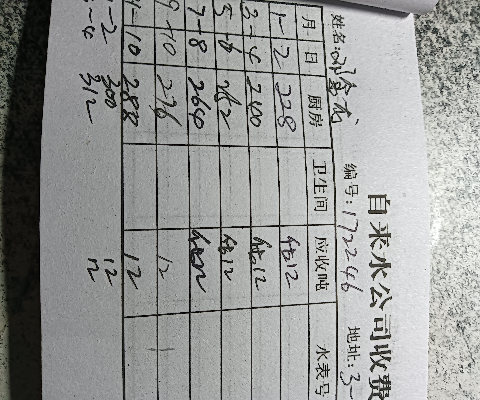 自来水公司收费
姓名: 编号:172246 地址:3-
月 日 厨房 卫生间 应收吨 水表号
1-2 228 估12
3-4 240 估12
5-6 252 估12
7-8 264 估12
9-10 276 12
11-10 288 12
1-2 300 12
3-4 312 12